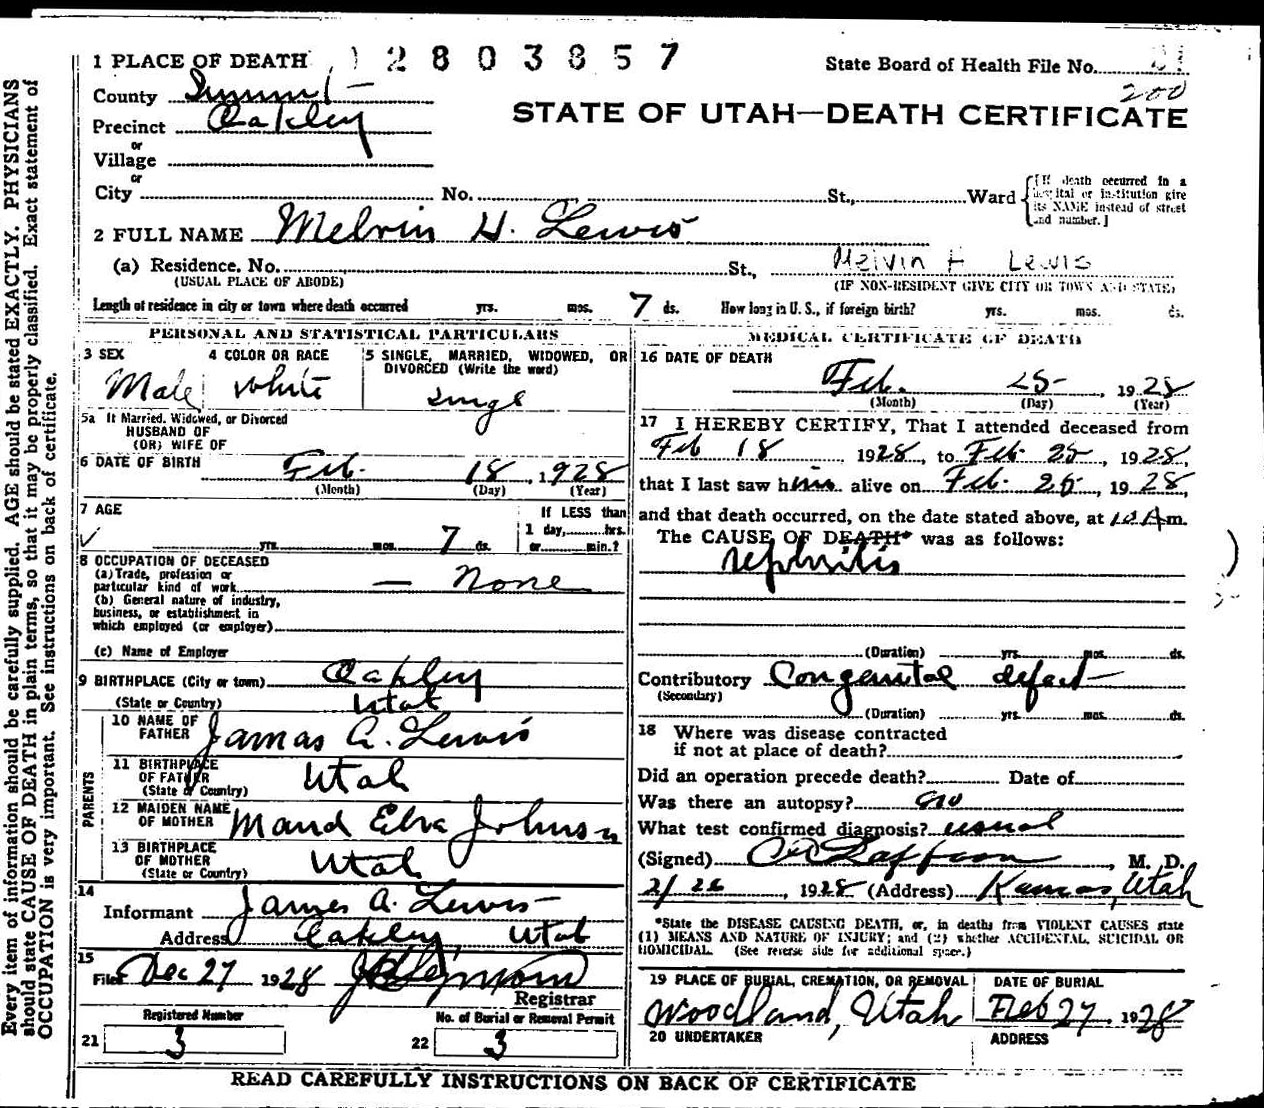 Every item of information should be carefully supplied. AGE should be stated EXACTLY. PHYSICIANS
should state CAUSE OF DEATH in plain terms, so that it may be properly classified. Exact statement of
OCCUPATION is very important. See instructions on back of certificate.
1 PLACE OF DEATH 12803857
State Board of Health File No.
200
County Summit
STATE OF UTAH—DEATH CERTIFICATE
Precinct Oakley
or
Village
or
City No. St., Ward
[If death occurred in a
hospital or institution give
its NAME instead of street
and number.]
2 FULL NAME Melvin H. Lewis
(a) Residence. No. St., Melvin H Lewis
(USUAL PLACE OF ABODE) (IF NON-RESIDENT GIVE CITY OR TOWN AND STATE)
Length of residence in city or town where death occurred yrs. mos. 7 ds. How long in U. S., if foreign birth? yrs. mos. ds.
PERSONAL AND STATISTICAL PARTICULARS
3 SEX 4 COLOR OR RACE 5 SINGLE, MARRIED, WIDOWED, OR
DIVORCED (Write the word)
Male White Single
5a If Married, Widowed, or Divorced
HUSBAND OF
(OR) WIFE OF
6 DATE OF BIRTH Feb. 18, 1928
(Month) (Day) (Year)
7 AGE If LESS than
1 day, hrs.
yrs. mos. 7 ds. or min.?
8 OCCUPATION OF DECEASED
(a) Trade, profession or
particular kind of work — None
(b) General nature of industry,
business, or establishment in
which employed (or employer)
(c) Name of Employer
9 BIRTHPLACE (City or town) Oakley
(State or Country) Utah
PARENTS
10 NAME OF
FATHER James A. Lewis
11 BIRTHPLACE
OF FATHER Utah
(State or Country)
12 MAIDEN NAME
OF MOTHER Maud Elva Johnson
13 BIRTHPLACE
OF MOTHER Utah
(State or Country)
14
Informant James A. Lewis
Address Oakley, Utah
15
Filed Dec 27 1928
Registrar
Registered Number No. of Burial or Removal Permit
21 3 22 3
MEDICAL CERTIFICATE OF DEATH
16 DATE OF DEATH
Feb. 25, 1928
(Month) (Day) (Year)
17 I HEREBY CERTIFY, That I attended deceased from
Feb 18 1928, to Feb. 25, 1928,
that I last saw him alive on Feb. 25, 1928,
and that death occurred, on the date stated above, at 10 Am.
The CAUSE OF DEATH* was as follows:
nephritis
(Duration) yrs. mos. ds.
Contributory Congenital defect
(Secondary)
(Duration) yrs. mos. ds.
18 Where was disease contracted
if not at place of death?
Did an operation precede death? Date of
Was there an autopsy? no
What test confirmed diagnosis? usual
(Signed) , M. D.
2/26, 1928 (Address) Kamas, Utah
*State the DISEASE CAUSING DEATH, or, in deaths from VIOLENT CAUSES state
(1) MEANS AND NATURE OF INJURY; and (2) whether ACCIDENTAL, SUICIDAL OR
HOMICIDAL. (See reverse side for additional space.)
19 PLACE OF BURIAL, CREMATION, OR REMOVAL DATE OF BURIAL
Woodland, Utah Feb 27, 1928
20 UNDERTAKER ADDRESS
READ CAREFULLY INSTRUCTIONS ON BACK OF CERTIFICATE